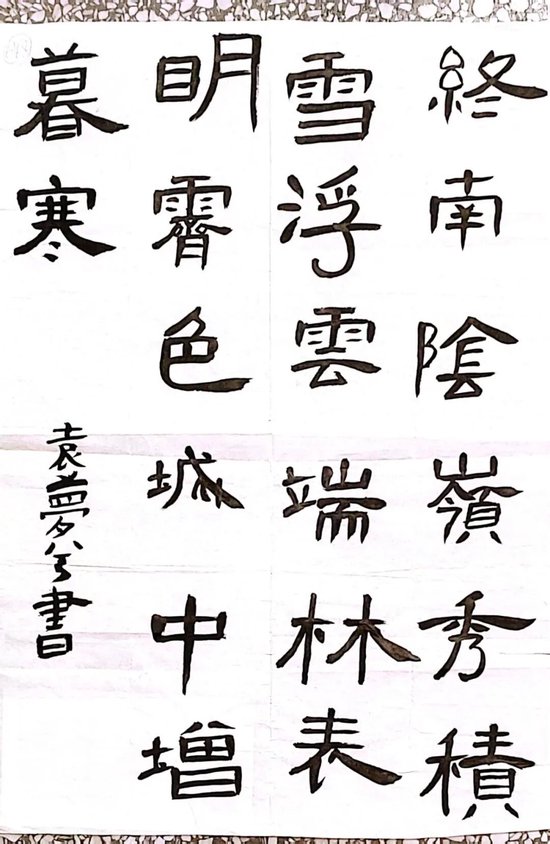 終南陰嶺秀積
雪浮雲端林表
明霽色城中增
暮寒
袁夢兮書